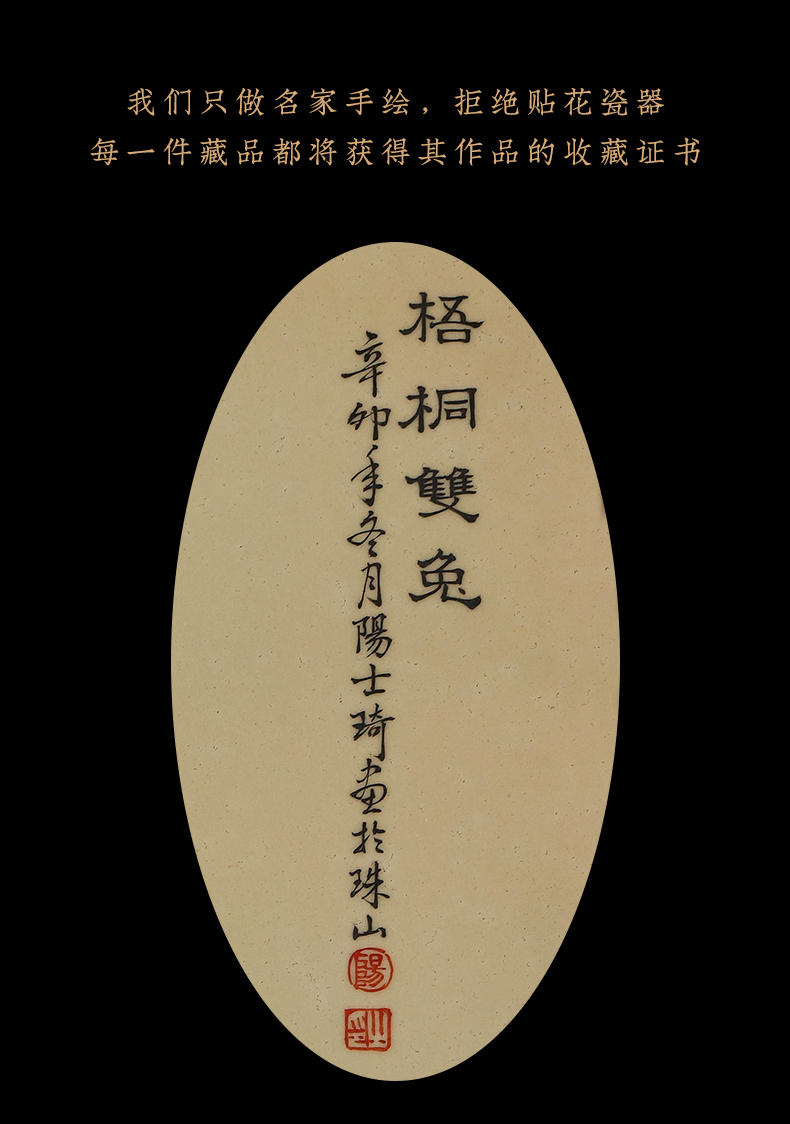 我们只做名家手绘，拒绝贴花瓷器
每一件藏品都将获得其作品的收藏证书
梧桐雙兔
辛卯年冬月陽士琦画於珠山
陽